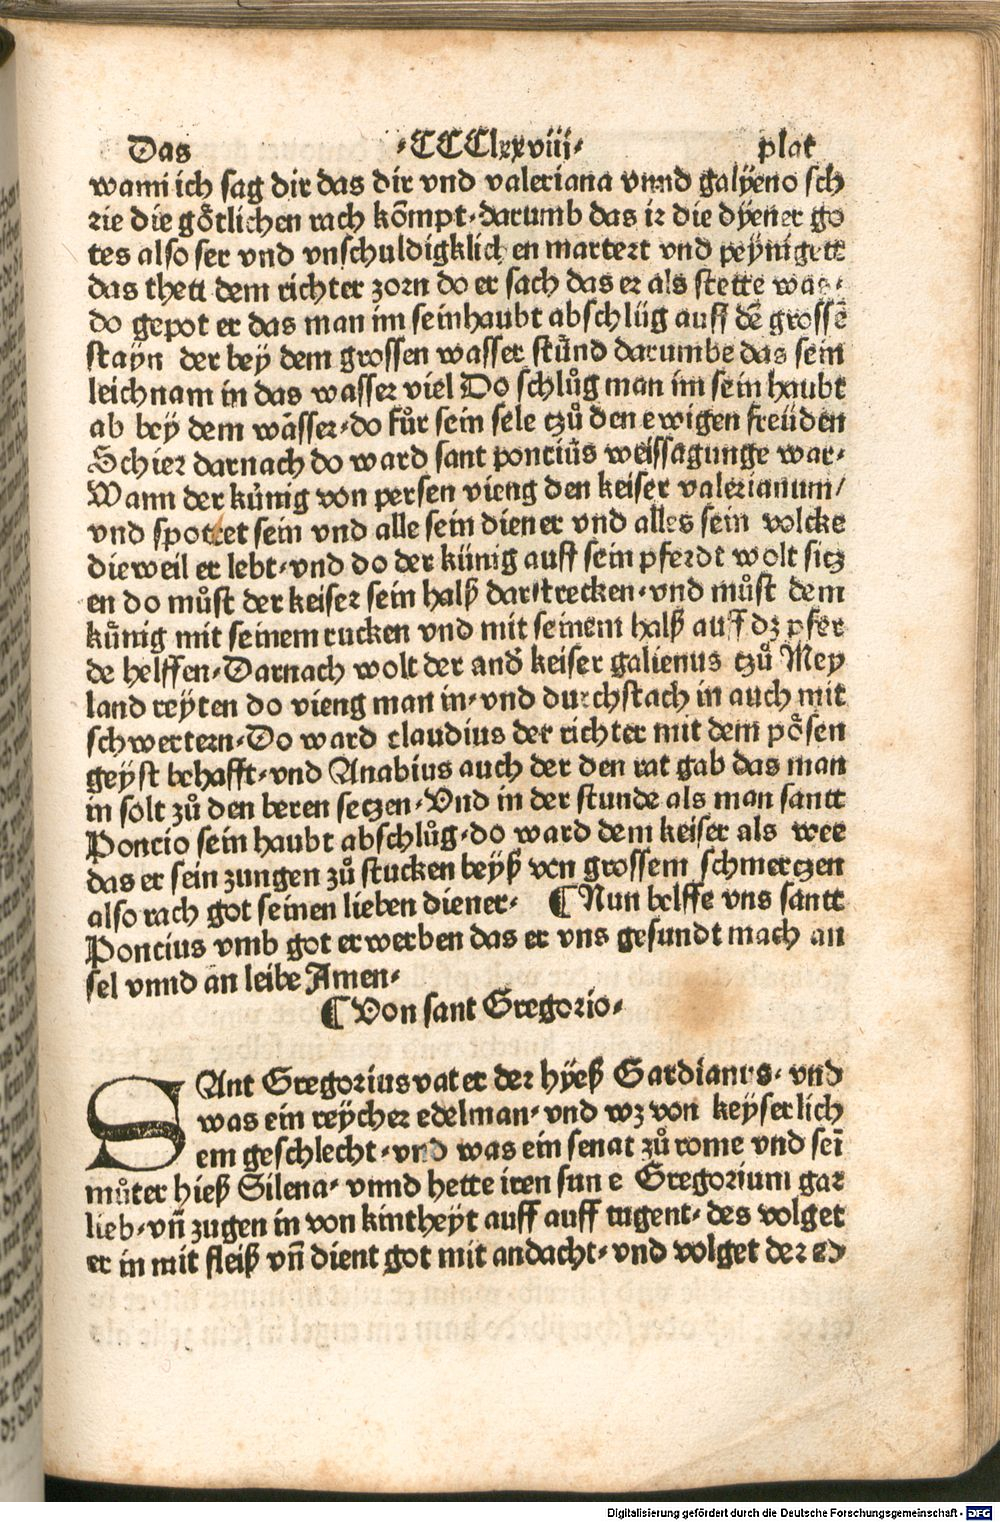 Das ·CCClxxviii· plat
wann ich sag dir das dir vnd valeriana vnnd galÿeno sch
rie die gőtlichen rach kōmpt·darumb das ir die dÿener go
tes also ser vnd vnschuldigklich en martert vnd peÿnigett
das thett dem richter zorn do er sach das er als stette was·
do gepot er das man im seinhaubt abschlüg auff dē grossē
staÿn der beÿ dem grossen wasser stůnd darumbe das sein
leichnam in das wasser viel Do schlůg man im sein haubt
ab beÿ dem wásser·do fůr sein sele tzů den ewigen freüden
Schier darnach do ward sant poncius weissagunge war·
Wann der künig von persen vieng den keiser valerianum/
vnd spottet sein vnd alle sein diener vnd alles sein volcke
dieweil er lebt·vnd do der künig auff sein pferdt wolt sitz
en do můst der keiser sein halß darstrecken·vnd můst dem
künig mit seinem rucken vnd mit seinem halß auff dz pfer
de helffen·Darnach wolt der anď keiser galienus tzů Mey
land reÿten do vieng man in·vnd durchstach in auch mit
schwertern·Do ward claudius der richter mit dem pősen
geÿst behafft·vnd Anabius auch der den rat gab das man
in solt zů den beren setzen·Vnd in der stunde als man santt
Poncio sein haubt abschlůg·do ward dem keiser als wee
das er sein zungen zů stucken beÿß von grossem schmertzen
also rach got seinen lieben diener· ¶ Nun helffe vns santt
Poncius vmb got erwerben das er vns gesundt mach an
sel vnnd an leibe Amen·
¶ Von sant Gregorio·
SAnt Gregorius vater der hÿeß Gardianus· vnd
was ein reÿcher edelman·vnd wz von keÿserlich
em geschlecht·vnd was ein senat zů rome vnd seī
můter hieß Silena· vnnd hette iren sun e Gregorium gar
lieb·vn̄ zugen in von kintheÿt auff auff tugent·des volget
er in mit fleiß vn̄ dient got mit andacht·vnd volget der
Digitalisierung gefördert durch die Deutsche Forschungsgemeinschaft - DFG